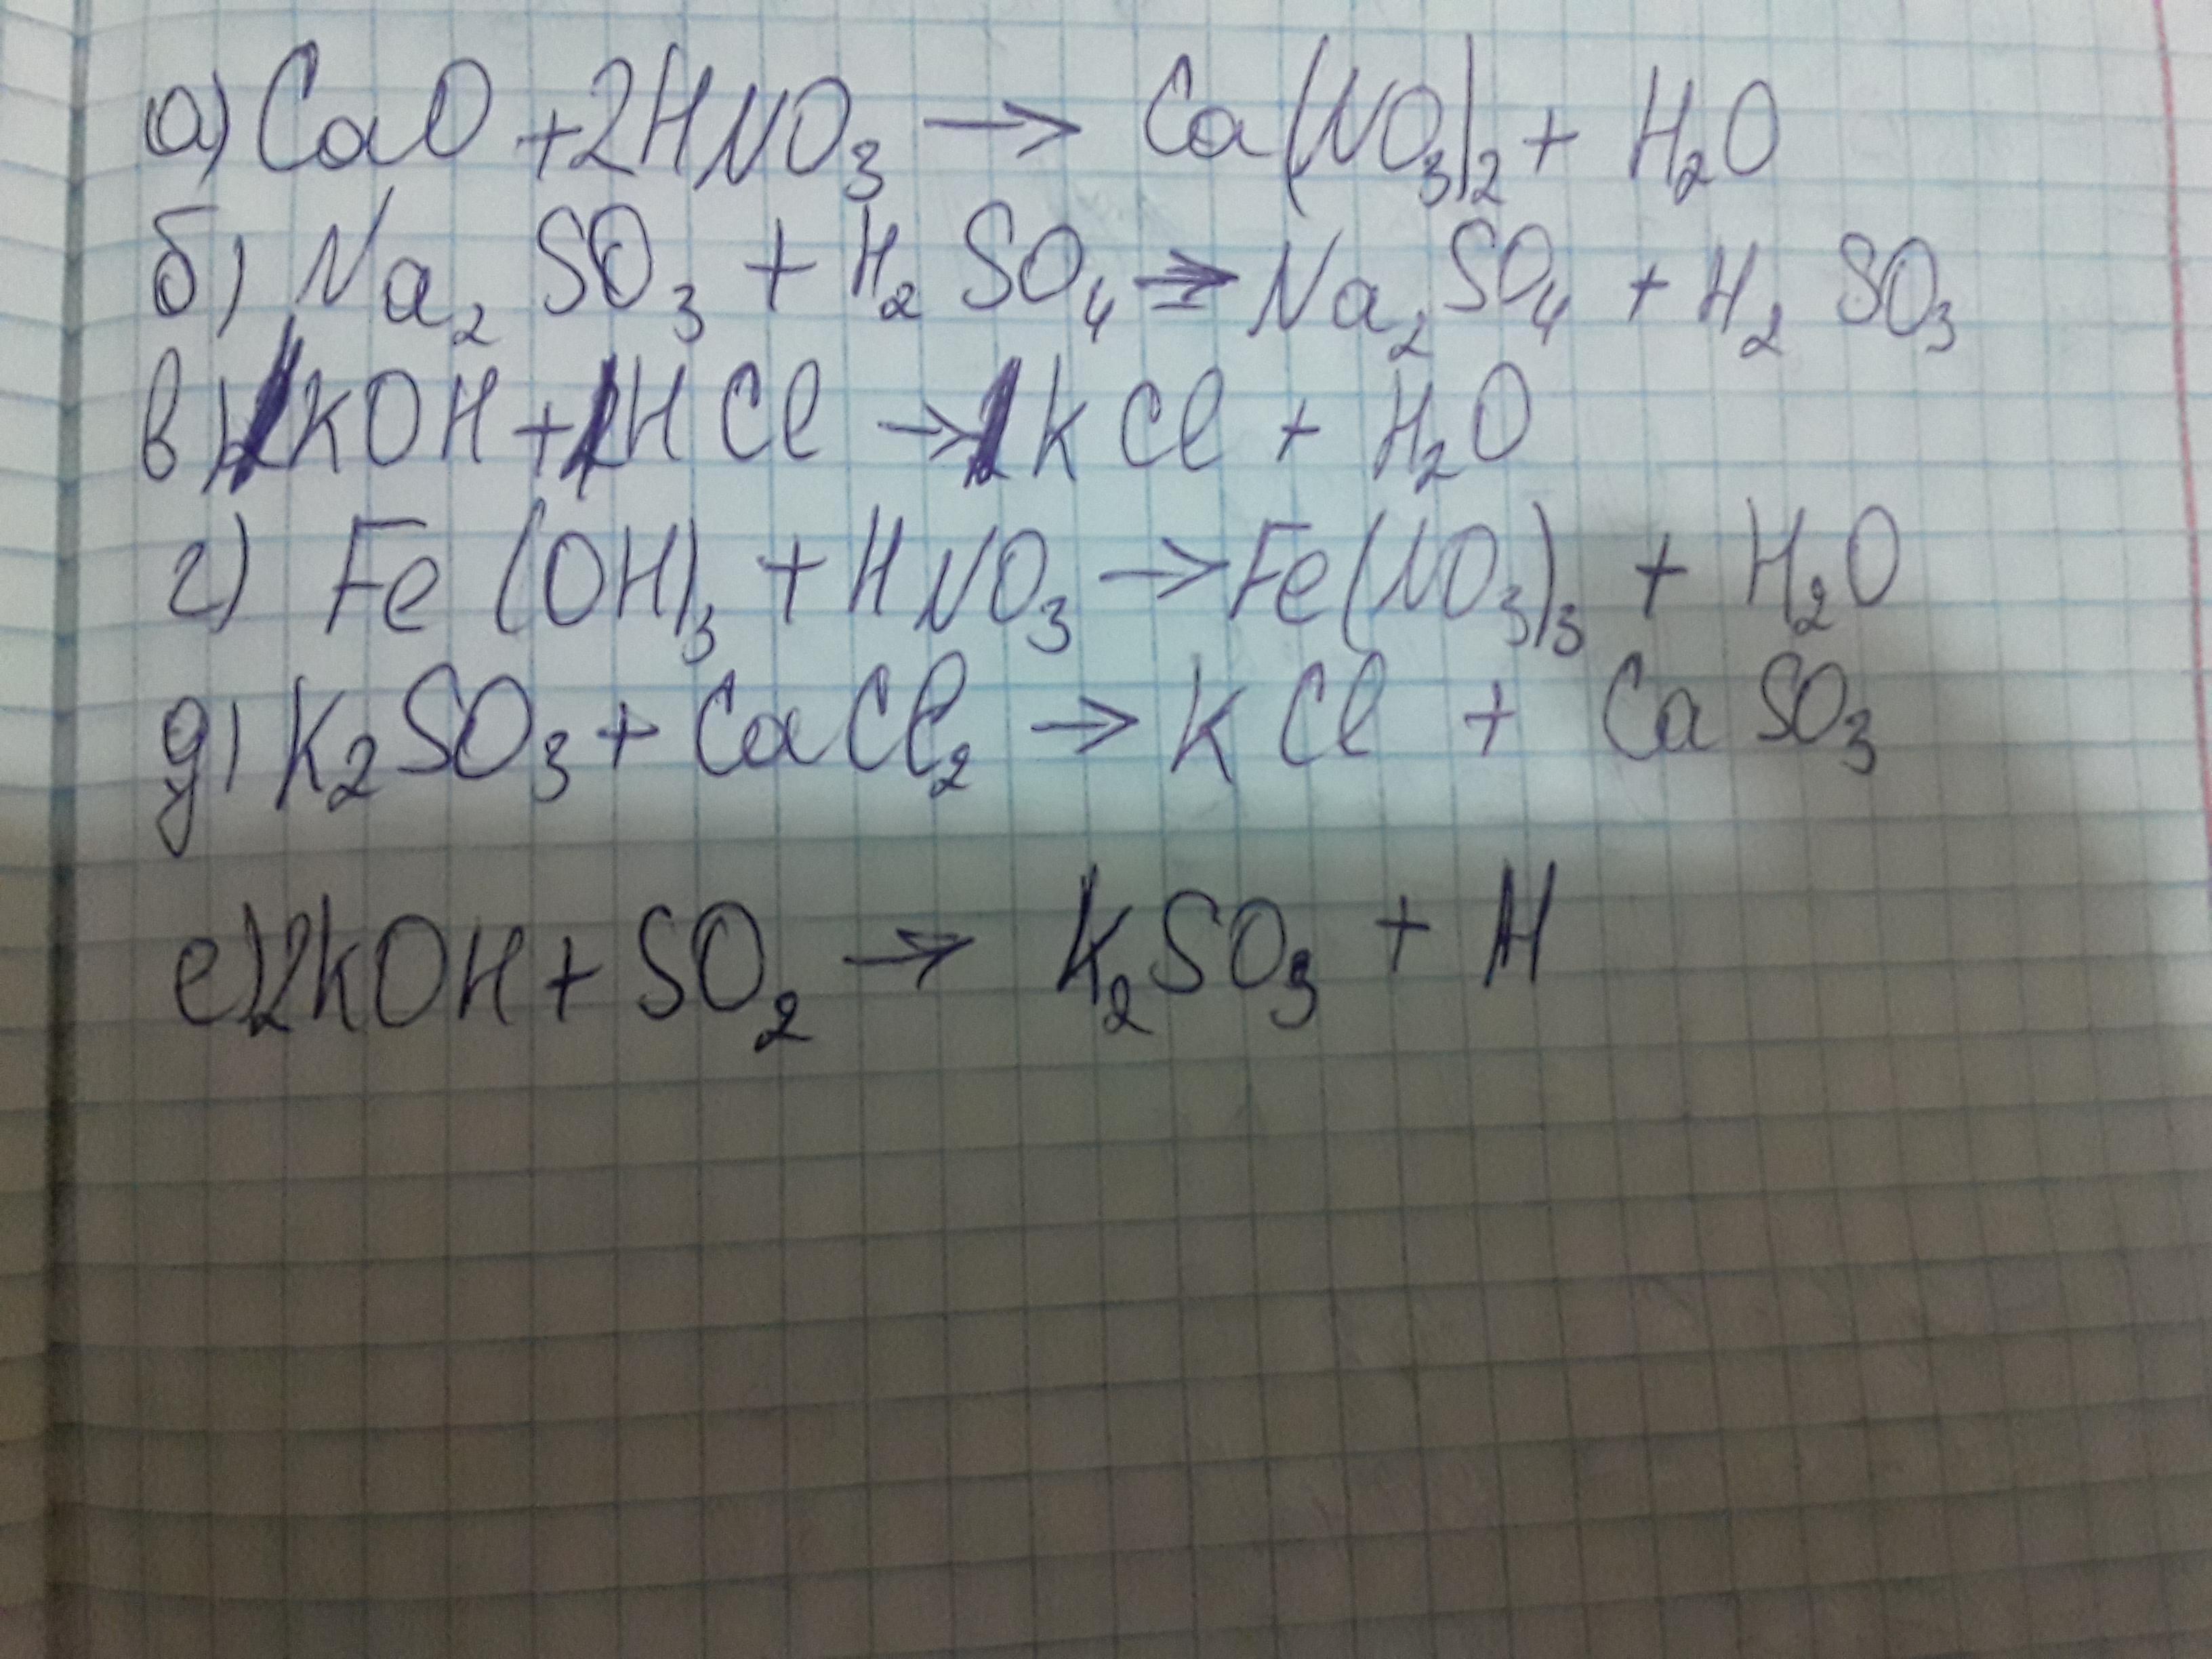 а) CaO + 2HNO₃ → Ca(NO₃)₂ + H₂O
б) Na₂SO₃ + H₂SO₄ → Na₂SO₄ + H₂SO₃
в) KOH + HCl → KCl + H₂O
г) Fe(OH)₃ + HNO₃ → Fe(NO₃)₃ + H₂O
д) K₂SO₃ + CaCl₂ → KCl + CaSO₃
е) 2KOH + SO₂ → K₂SO₃ + H